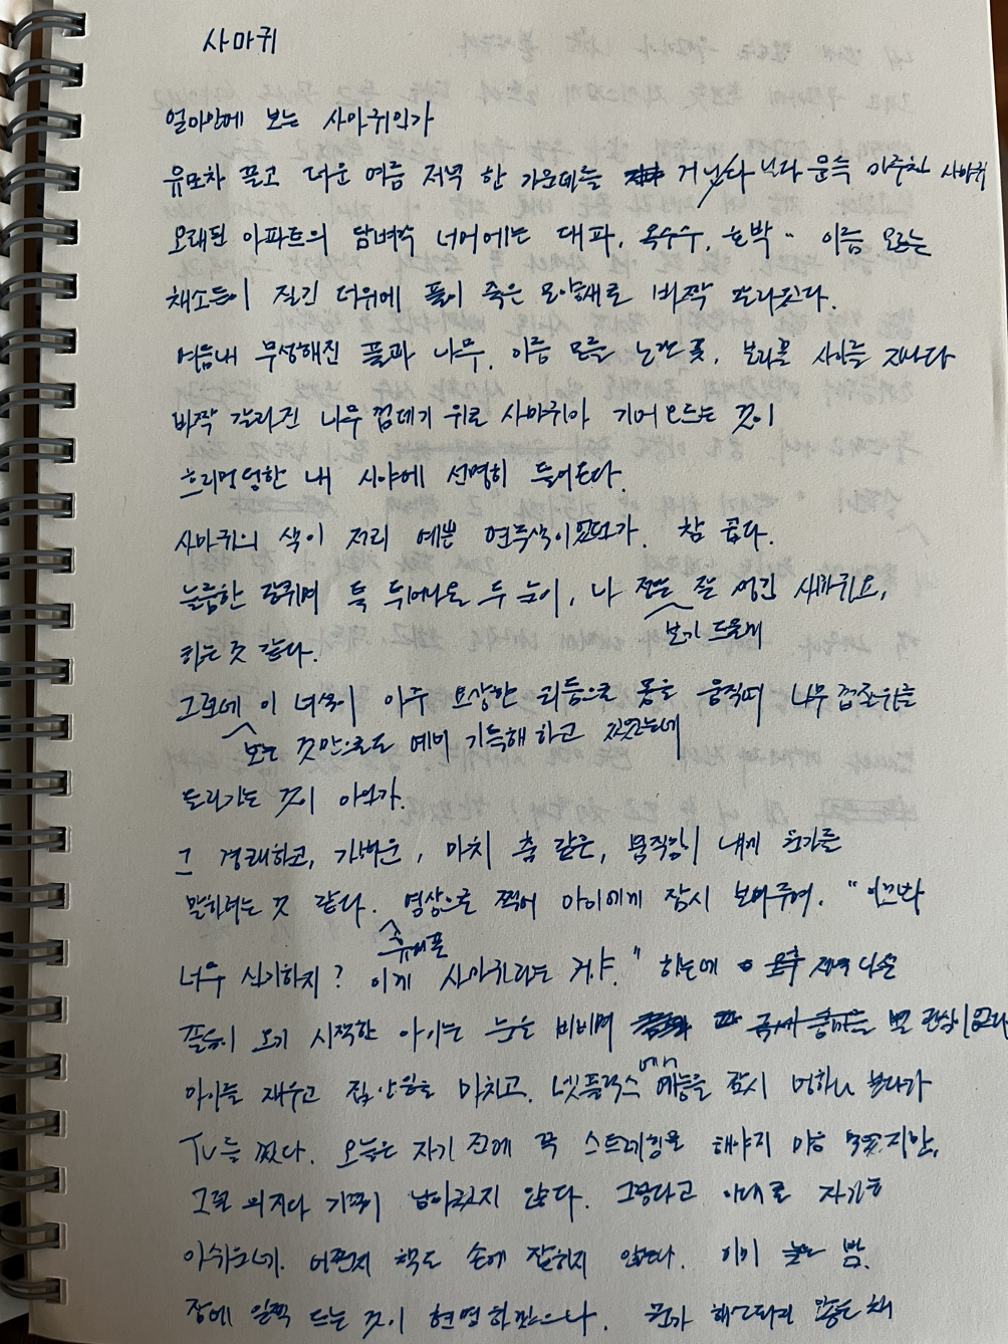 사마귀
얼마만에 보는 사마귀인가
유모차 끌고 더운 여름 저녁 한 가운데를 거닐다 문득 마주친 사마귀
오래된 아파트의 담벼락 너머에는 대파, 옥수수, 호박.. 이름 모르는
채소들이 질긴 더위에 풀이 죽은 모양새로 바짝 말라있다.
여름내 무성해진 풀과 나무, 이름 모를 노란 꽃, 보라꽃 사이를 지나다
바짝 갈라진 나무 껍데기 위로 사마귀가 기어오르는 것이
흐리멍덩한 내 시야에 선명히 들어온다.
사마귀의 색이 저리 예쁜 연두색이었던가. 참 곱다.
늠름한 갈퀴며 툭 튀어나온 두 눈이, 나 정도 잘 생긴 사마귀요,
보기 드물게
하는 것 같다.
그런데 이 녀석이 아주 요상한 리듬으로 몸을 움직여 나무 껍질 위를
보는 것만으로도 예비 기특해 하고 있었는데
올라가는 것이 아닌가.
그 경쾌하고, 가벼운, 마치 춤 같은, 움직임이 내게 뭔가를
말하려는 것 같다. 영상으로 찍어 아이에게 잠시 보여주며. "이것봐
휴대폰
너무 신기하지? 이게 사마귀라는 거야." 하는데
졸음이 오기 시작한 아이는 눈을 비비며 관심이 없다
아이를 재우고 집안일을 마치고, 넷플릭스 예능을 잠시 멍하니 보다가
TV를 껐다. 오늘은 자기 전에 꼭 스트레칭을 해야지 마음 먹었지만,
그럴 의지나 기력이 남아있지 않다. 그렇다고 이대로 자기는
아쉬운데. 어쩐지 책도 손에 잡히지 않는다. 이미 늦은 밤.
잠에 일찍 드는 것이 현명하겠으나. 뭔가 해소되지 않은 채